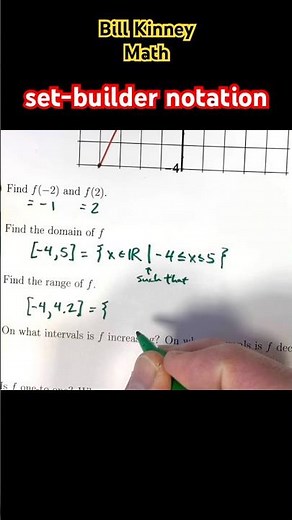 Bill Kinney
Math
set-builder notation
-4
Find f(−2) and f(2).
= -1 = 2
Find the domain of f
[-4,5] = {x ∈ ℝ | -4 ≤ x ≤ 5}
↑
such that
Find the range of f.
[-4,4.2] = {
On what intervals is f increasing? On is f dec
Is f one-to-one?